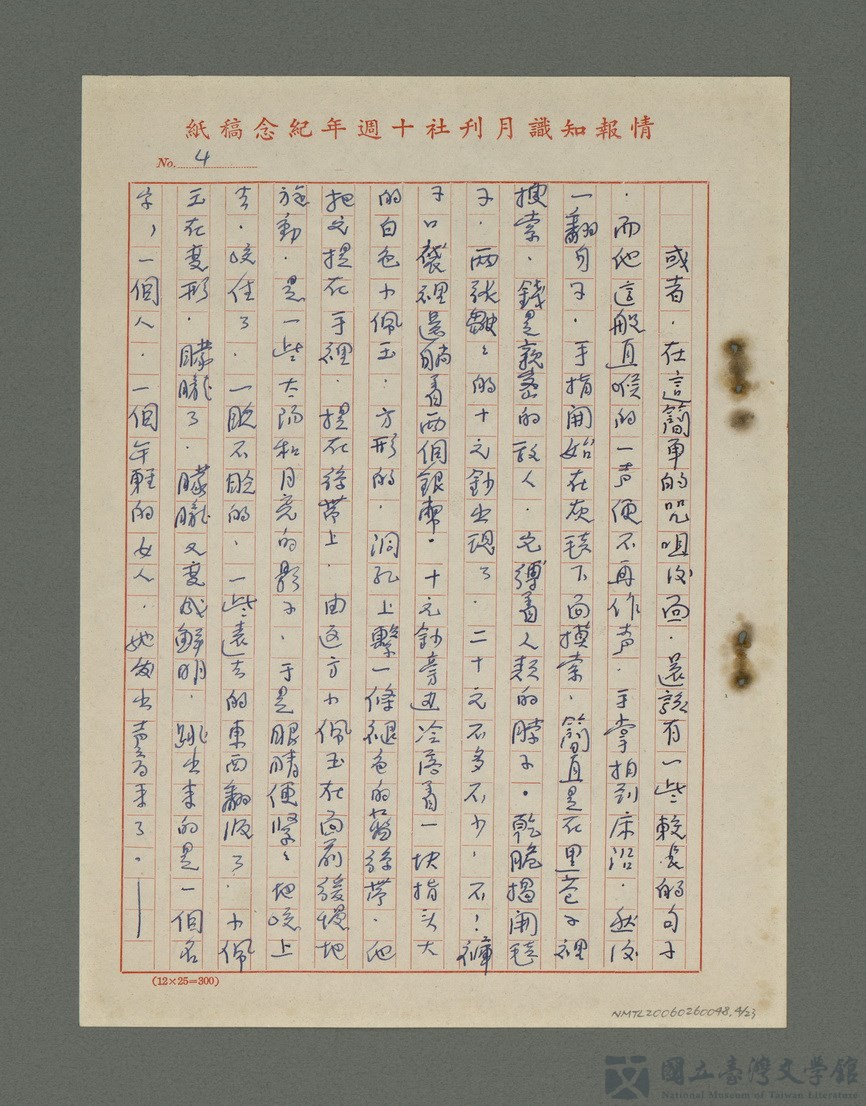 情報知識月刊社十週年紀念稿紙
No. 4
或者.在這簡單的咒咀後面.還該有一些較長的句子
.而他這般直喉的一声便不再作声.手掌拍到床沿.然後
一翻身子.手指開始在灰毯下面摸索.簡直是在黑巷子裡
搜索.錢是親密的敌人.它縛着人類的脖子.乾脆揭開毯
子.两张皺々的十元鈔出現了.二十元不多不少.不!褲
子口袋裡還躺着两個銀幣.十元鈔旁边冷落着一块指头大
的白色小佩玉.方形的.洞孔上繫一條褪色的舊絲带.他
把它提在手裡.提在絲带上.由这方小佩玉在面前緩慢地
旋動.是一些太陽和月亮的影子.于是眼睛便緊々地咬上
去.咬住了.一眨不眨的.一些遠去的東西翻滚了.小佩
玉在変形.朦朧了.朦朧又変成鮮明.跳出来的是一個名
字,一個人.一個年輕的女人.她發出声音来了.——
(12×25=300)
NMTL20060260048.4/23
國立臺灣文學館
National Museum of Taiwan Literature